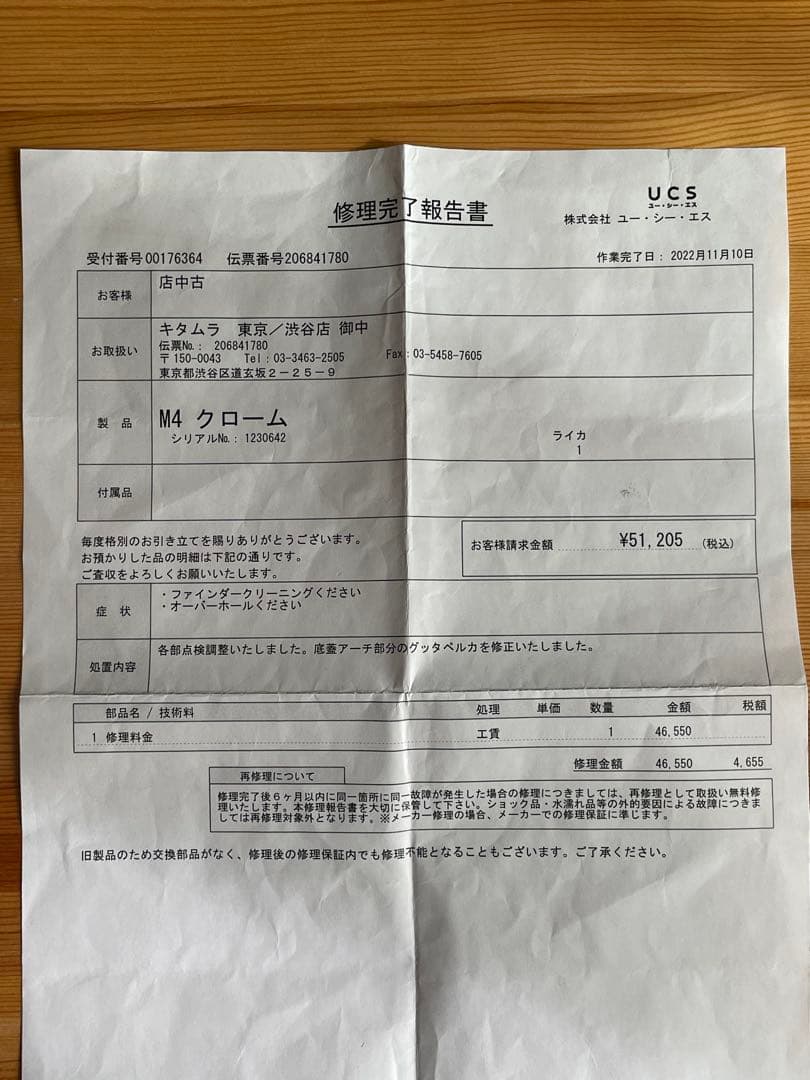 UCS
ユー・シー・エス
修理完了報告書
株式会社 ユー・シー・エス
受付番号00176364 伝票番号206841780
作業完了日: 2022月11月10日
お客様
店中古
お取扱い
キタムラ 東京/渋谷店 御中
伝票No.: 206841780
〒150-0043 Tel:03-3463-2505 Fax:03-5458-7605
東京都渋谷区道玄坂2-25-9
製 品
M4 クローム
シリアルNo.: 1230642
ライカ
1
付属品
毎度格別のお引き立てを賜りありがとうございます。
お預かりした品の明細は下記の通りです。
ご査収をよろしくお願いいたします。
お客様請求金額 ¥51,205 (税込)
症 状
・ファインダークリーニングください
・オーバーホールください
処置内容
各部点検調整いたしました。底蓋アーチ部分のグッタペルカを修正いたしました。
部品名 / 技術料 処理 単価 数量 金額 税額
1 修理料金 工賃 1 46,550
修理金額 46,550 4,655
再修理について
修理完了後6ヶ月以内に同一箇所に同一故障が発生した場合の修理につきましては、再修理として取扱い無料修
理いたします。本修理報告書を大切に保管して下さい。ショック品・水濡れ品等の外的要因による故障につきま
しては再修理対象外となります。※メーカー修理の場合、メーカーでの修理保証に準じます。
旧製品のため交換部品がなく、修理後の修理保証内でも修理不能となることもございます。ご了承ください。